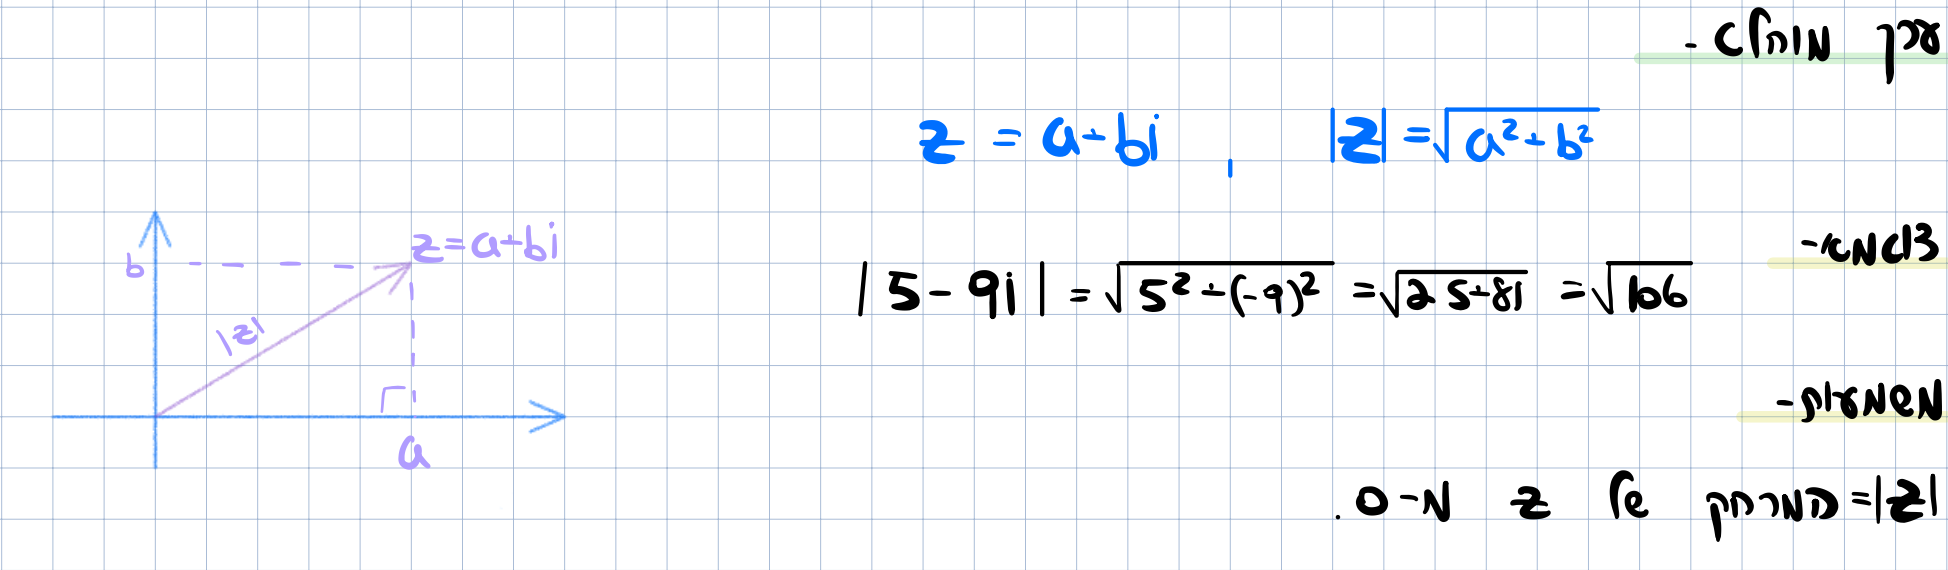 ערך מוחלט -
z = a+bi , |z| = √(a²+b²)
דוגמא-
|5-9i| = √(5²+(-9)²) = √(25+81) = √106
משמעות-
|z|=המרחק של z מ-0.
z=a+bi
b
|z|
a